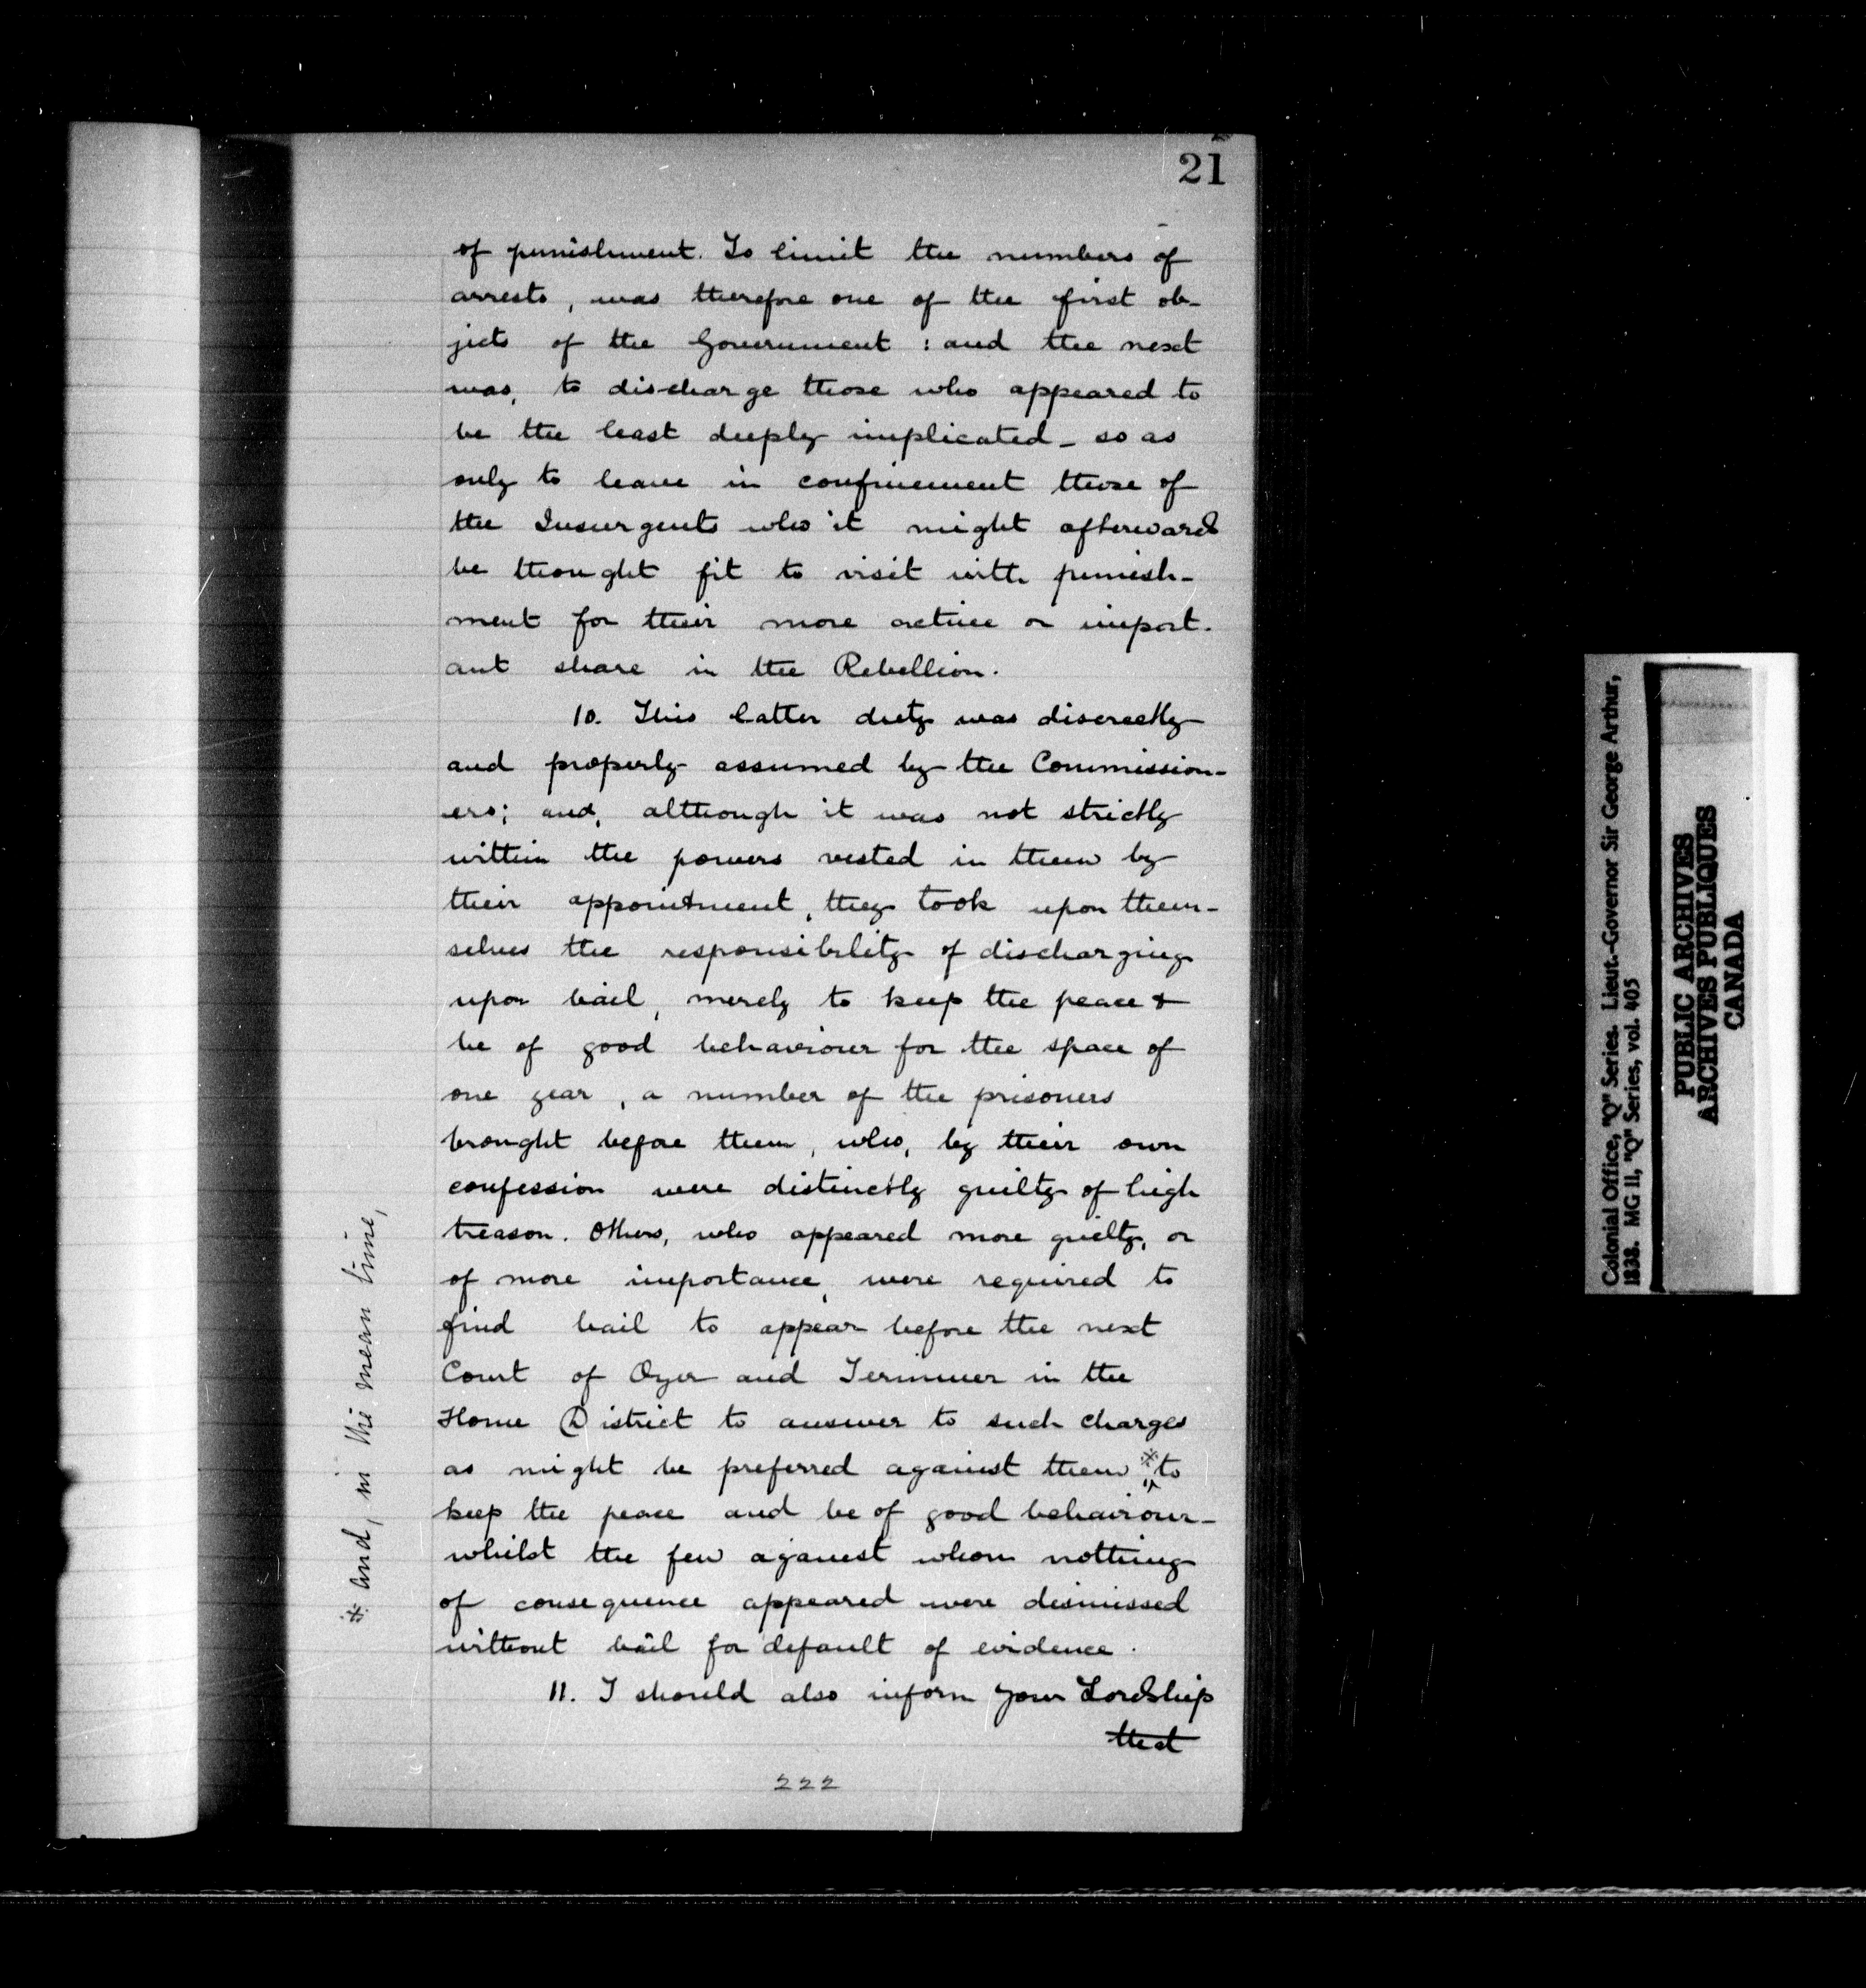 21
of punishment. To limit the numbers of
arrests, was therefore one of the first ob-
jects of the Government: and the next
was, to discharge those who appeared to
be the least deeply implicated - so as
only to leave in confinement those of
the Insurgents who it might afterwards
be thought fit to visit with punish-
ment for their more active or import-
ant share in the Rebellion.
10. This latter duty was discreetly
and properly assumed by the Commission-
ers; and, although it was not strictly
within the powers vested in them by
their appointment, they took upon them-
selves the responsibility of discharging
upon bail, merely to keep the peace &
be of good behaviour for the space of
one year, a number of the prisoners
brought before them, who, by their own
confession were distinctly guilty of high
treason. Others, who appeared more guilty, or
of more importance, were required to
find bail to appear before the next
Court of Oyer and Terminer in the
Home District to answer to such charges
as might be preferred against them * to
keep the peace and be of good behaviour -
whilst the few against whom nothing
of consequence appeared were dismissed
without bail for default of evidence.
11. I should also inform your Lordship
that
222
* and, in the mean time,
Colonial Office, "Q" Series. Lieut.-Governor Sir George Arthur,
1838. MG 11, "Q" Series, vol. 405
PUBLIC ARCHIVES
ARCHIVES PUBLIQUES
CANADA